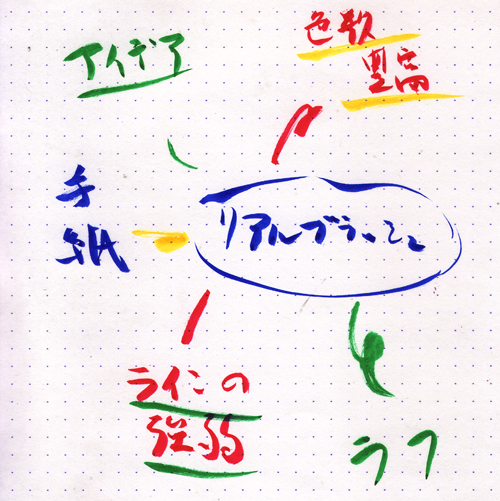 アイデア
色数
豊富
手
紙
リアルブラッシュ
ラインの
強弱
ラフ